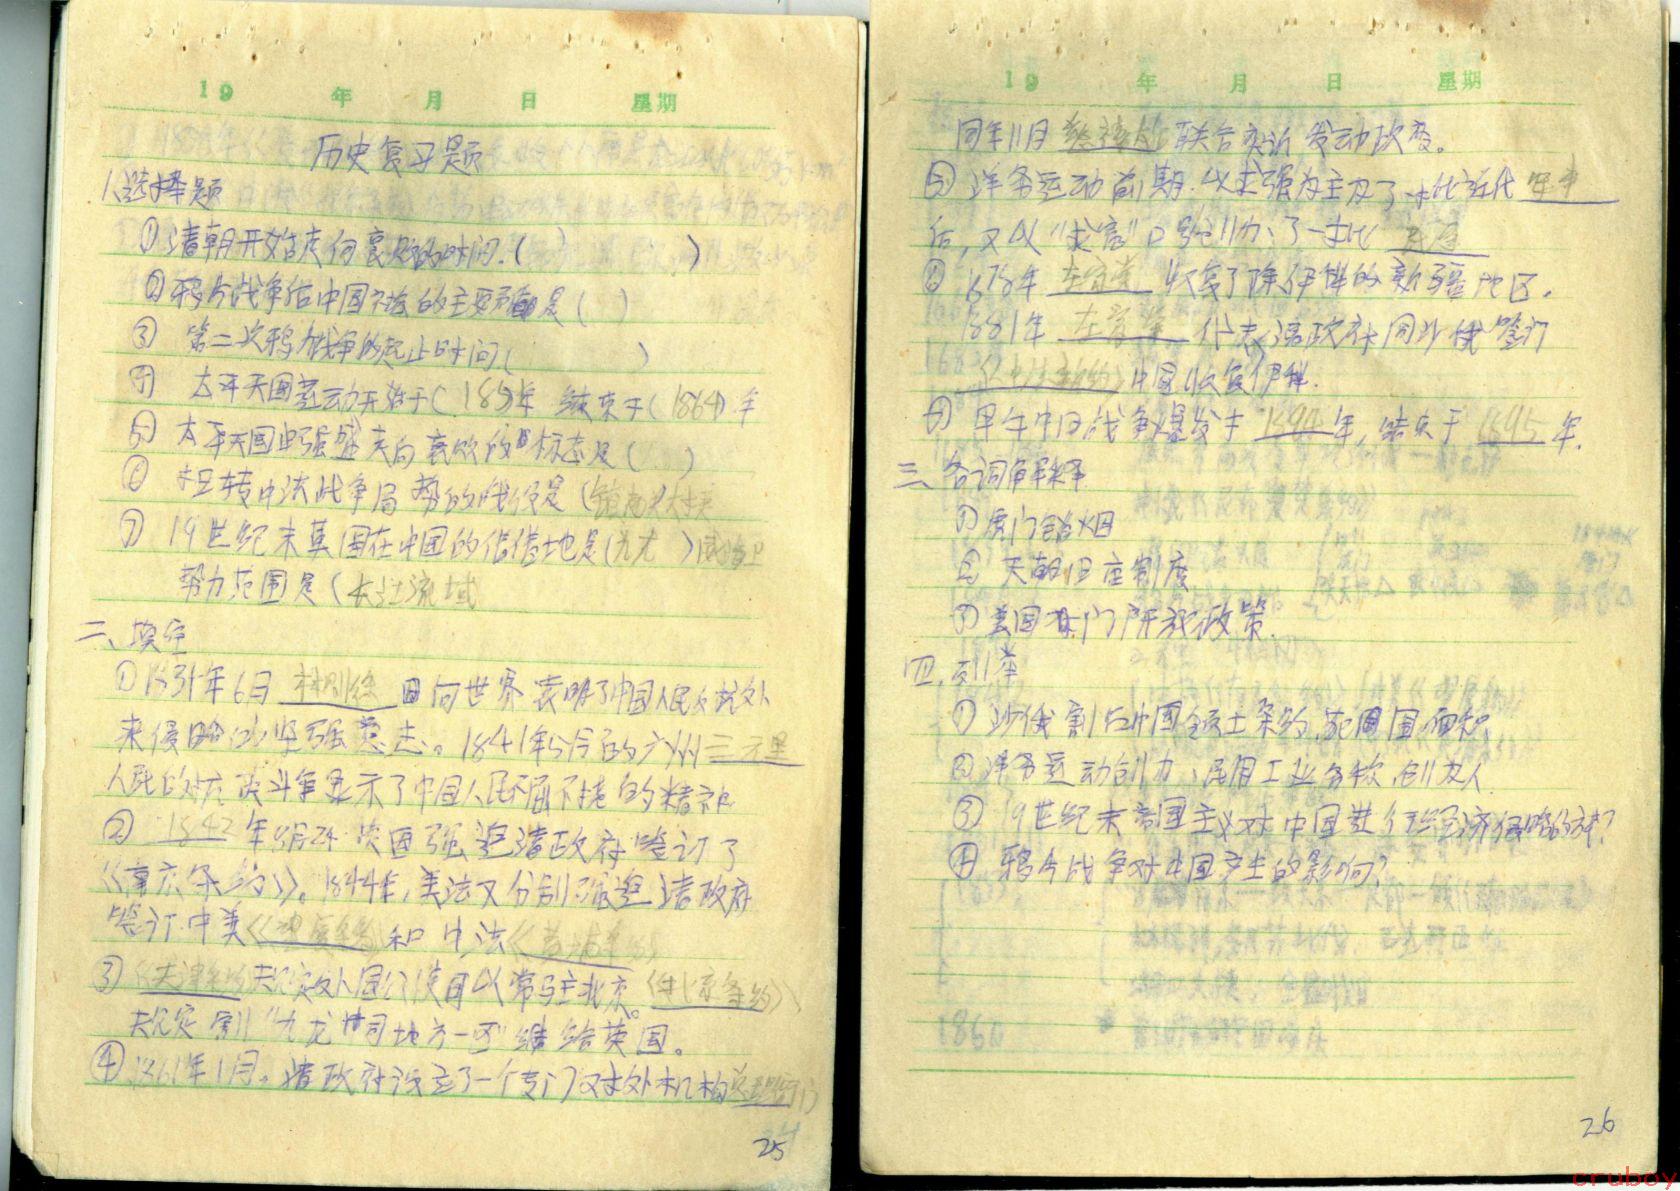 19 年 月 日 星期
历史复习题
1、选择题
①清朝开始走向衰败的时间.( )
②鸦片战争后中国社会的主要矛盾是( )
③ 第二次鸦片战争的起止时间( )
④ 太平天国运动开始于(1851)年 结束于(1864)年
⑤ 太平天国由强盛走向衰败的标志是( )
⑥ 扭转中法战争局势的战役是(镇南关大捷
⑦ 19世纪末英国在中国的租借地是(九龙 )威海卫
势力范围是(长江流域
二、填空
①1839年6月 林则徐 向世界表明了中国人民反抗外
来侵略的坚强意志。1841年5月的广州三元里
人民的抗英斗争显示了中国人民不屈不挠的精神
② 1842 年8月 英国强迫清政府签订了
《南京条约》。1844年,美法又分别强迫清政府
签订中美《望厦条约》和 中法《黄埔条约》
③《天津条约》规定外国公使可以常驻北京。《北京条约》
规定割“九龙司地方一区”给英国。
④1861年1月。清政府设立了一个专门对外机构总理衙门
25
19 年 月 日 星期
同年11月 慈禧太后 联合奕訢发动政变。
⑤洋务运动前期.以求强为主办了一批近代军事
后,又以“求富”口号创办了一批 民用
⑥1878年 左宗棠 收复了除伊犁的新疆地区。
1881年 代表清政府同沙俄签订
中国收复伊犁.
⑦ 甲午中日战争爆发于 1894 年,结束于 1895 年.
三、名词解释
①虎门销烟
② 天朝田亩制度
③ 美国 门户开放政策.
四.列举
① 沙俄割占中国领土条约.范围 面积.
②洋务运动创办、民用工业名称、创办人
③ 19世纪末帝国主义对中国进行经济侵略的方式?
④ 鸦片战争对中国产生的影响?
1860
26
cruboy